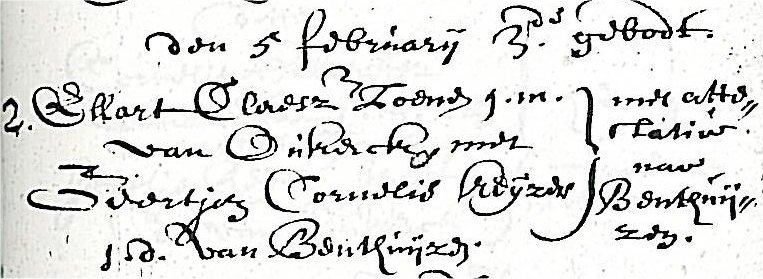 den 5 februarij 3.de gebodt.
2. Ellart Claesz Toenes j.m.
van Oukerck, met
Geertjen Cornelis Keijzer
j.d. van Benthuijzen.
met atte„
statie.
nae
Benthuij„
zen.